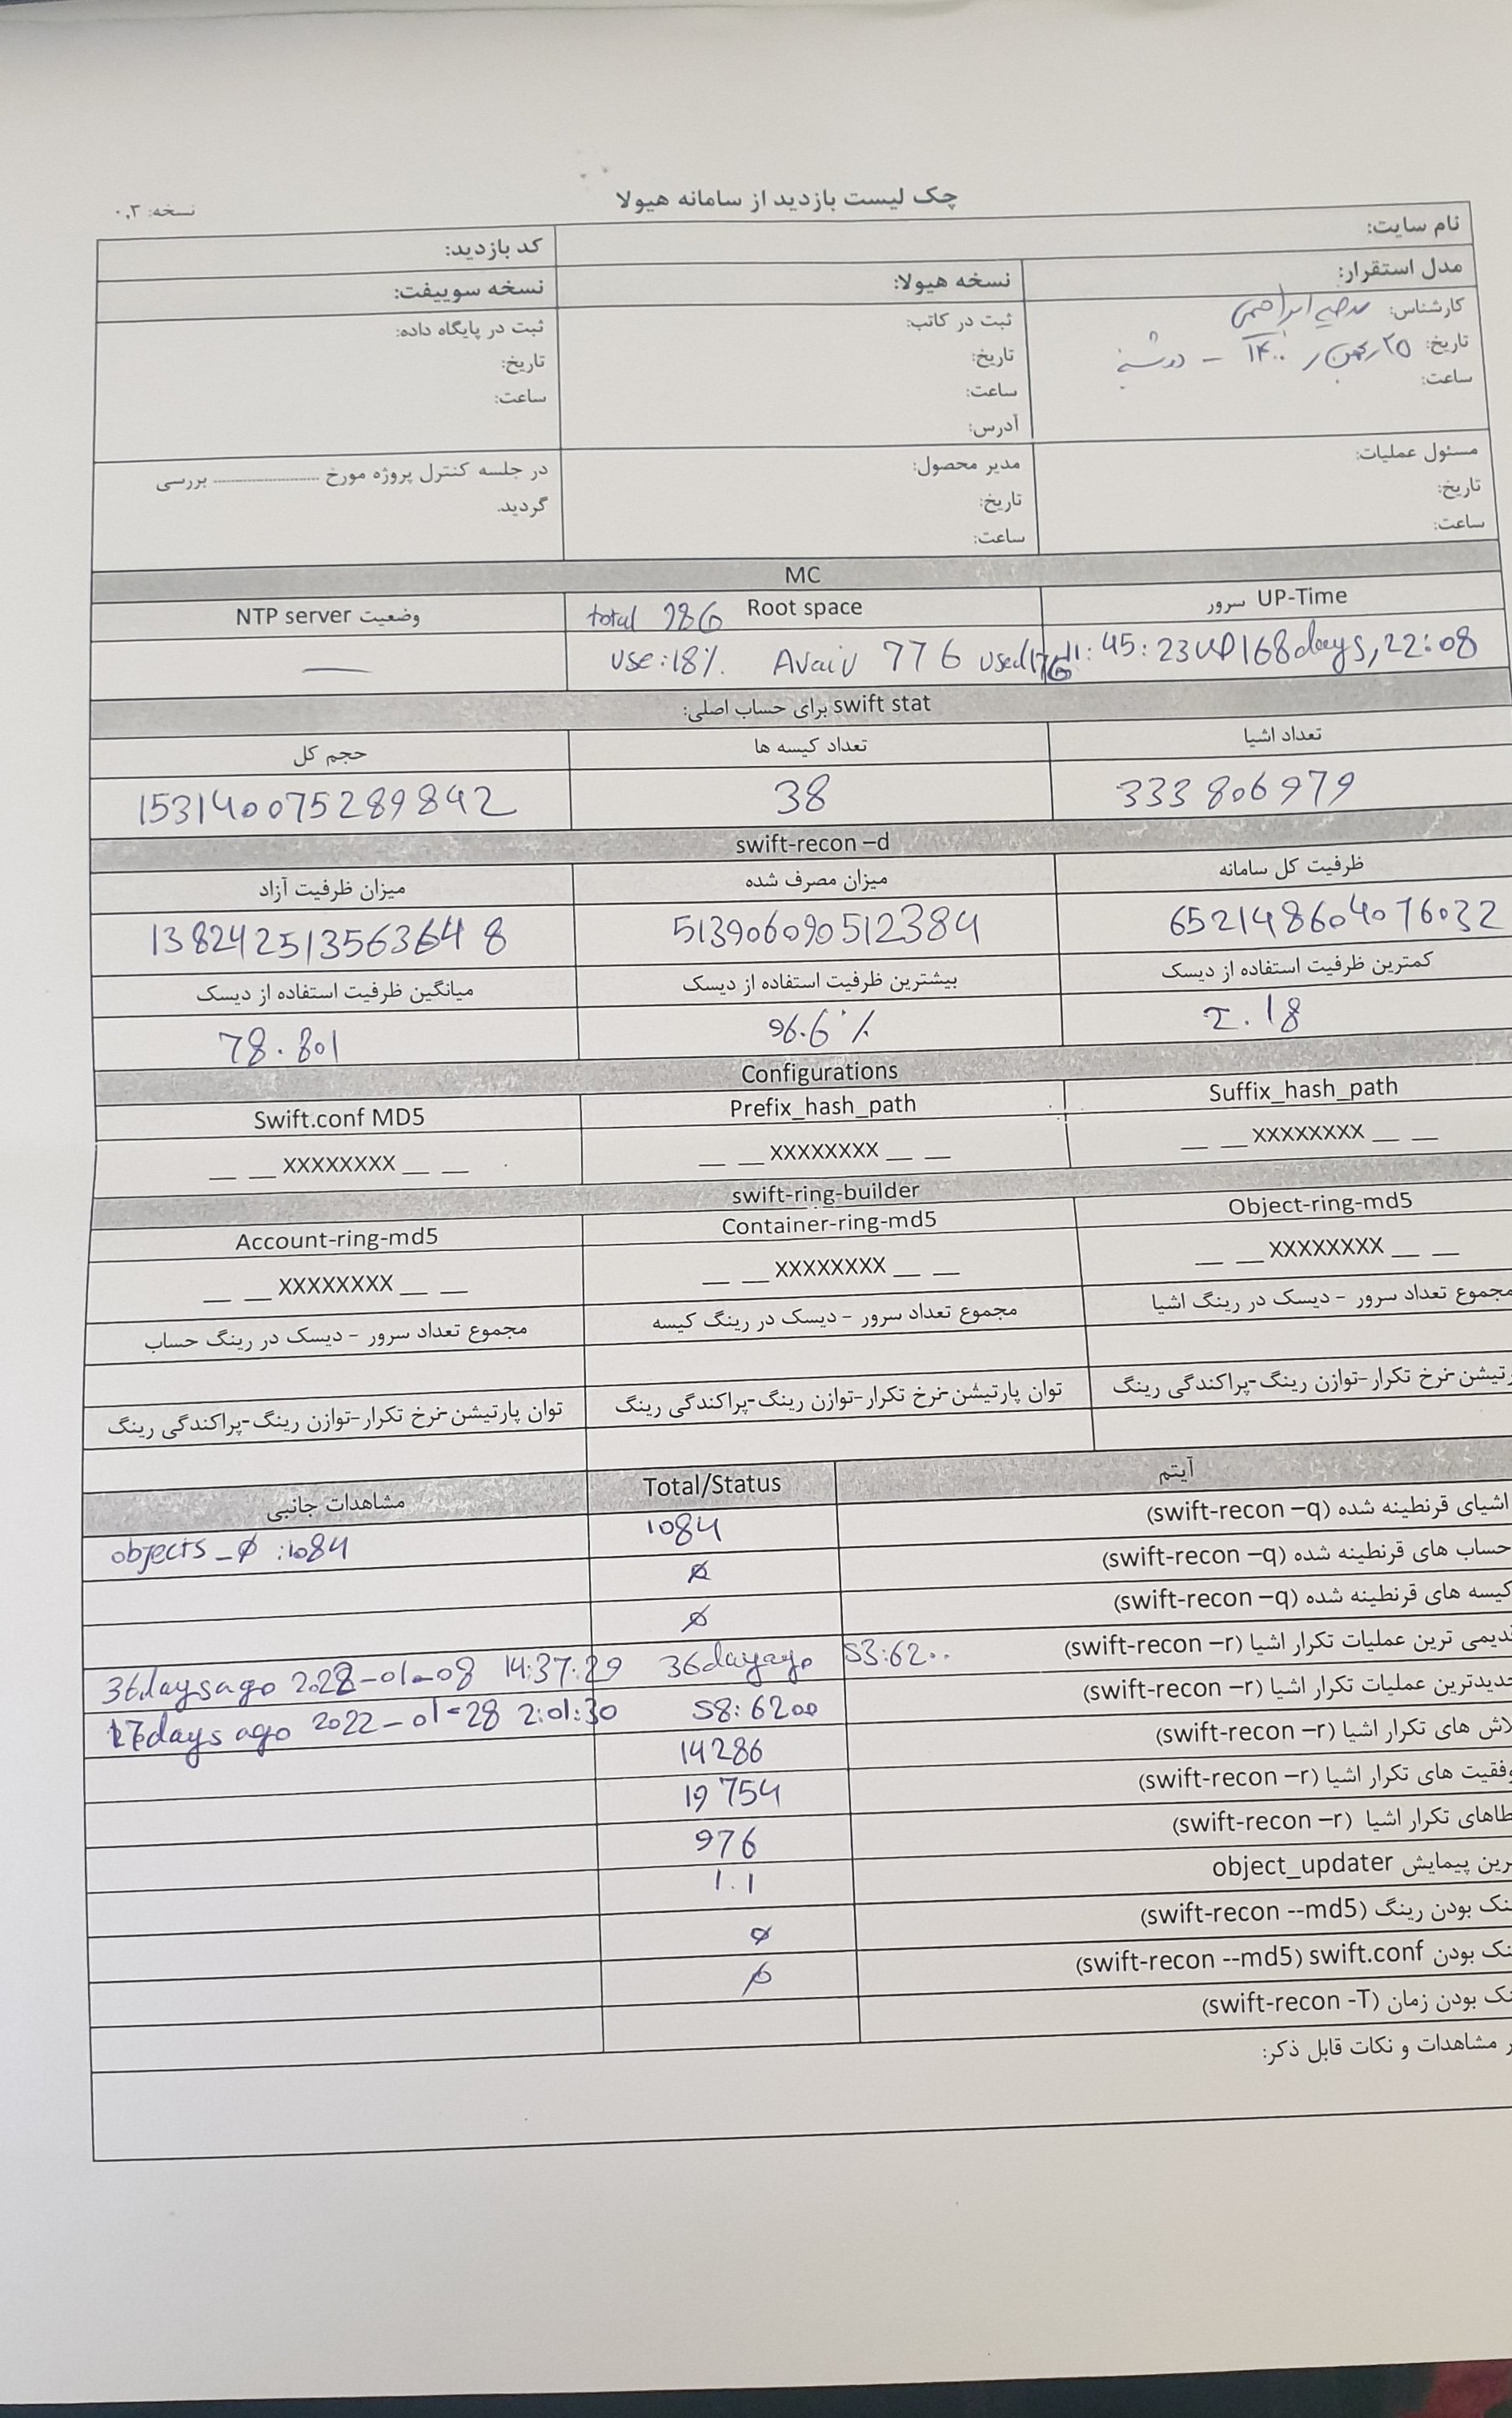 چک لیست بازدید از سامانه هیولا
نسخه: ۰,۳
نام سایت:
کد بازدید:
مدل استقرار:
نسخه هیولا:
نسخه سوییفت:
کارشناس: مرضیه ابراهیمی
تاریخ: ۲۵ بهمن ۱۴۰۰ - دوشنبه
ساعت:
ثبت در کاتب:
تاریخ:
ساعت:
آدرس:
ثبت در پایگاه داده:
تاریخ:
ساعت:
مسئول عملیات:
تاریخ:
ساعت:
مدیر محصول:
تاریخ:
ساعت:
در جلسه کنترل پروژه مورخ ............ بررسی
گردید.
MC
UP-Time سرور
Root space
total 98G
وضعیت NTP server
11:45:23 up 168 days, 22:08
use:18% Avail 77G used 17G
—
swift stat برای حساب اصلی:
تعداد اشیا
تعداد کیسه ها
حجم کل
333806979
38
153140075289842
swift-recon –d
ظرفیت کل سامانه
میزان مصرف شده
میزان ظرفیت آزاد
652148604076032
513906090512384
138242513563648
کمترین ظرفیت استفاده از دیسک
بیشترین ظرفیت استفاده از دیسک
میانگین ظرفیت استفاده از دیسک
2.18
96.6%
78.801
Configurations
Suffix_hash_path
Prefix_hash_path
Swift.conf MD5
__ __ XXXXXXXX __ __
__ __ XXXXXXXX __ __
__ __ XXXXXXXX __ __
swift-ring-builder
Object-ring-md5
Container-ring-md5
Account-ring-md5
__ __ XXXXXXXX __ __
__ __ XXXXXXXX __ __
__ __ XXXXXXXX __ __
مجموع تعداد سرور - دیسک در رینگ اشیا
مجموع تعداد سرور - دیسک در رینگ کیسه
مجموع تعداد سرور - دیسک در رینگ حساب
رتیشن-نرخ تکرار-توازن رینگ-پراکندگی رینگ
توان پارتیشن-نرخ تکرار-توازن رینگ-پراکندگی رینگ
توان پارتیشن-نرخ تکرار-توازن رینگ-پراکندگی رینگ
آیتم
Total/Status
مشاهدات جانبی
اشیای قرنطینه شده (swift-recon –q)
1084
objects_Ø :1084
حساب های قرنطینه شده (swift-recon –q)
Ø
کیسه های قرنطینه شده (swift-recon –q)
Ø
دیمی ترین عملیات تکرار اشیا (swift-recon –r)
S3:6200
36 day ago
36 days ago 2022-01-08 14:37:29
دیدترین عملیات تکرار اشیا (swift-recon –r)
S8:6200
days ago 2022-01-28 2:01:30
لاش های تکرار اشیا (swift-recon –r)
14286
وفقیت های تکرار اشیا (swift-recon –r)
19754
طاهای تکرار اشیا (swift-recon –r)
976
رین پیمایش object_updater
1.1
نک بودن رینگ (swift-recon --md5)
Ø
نک بودن swift.conf (swift-recon --md5)
Ø
نک بودن زمان (swift-recon -T)
ر مشاهدات و نکات قابل ذکر: